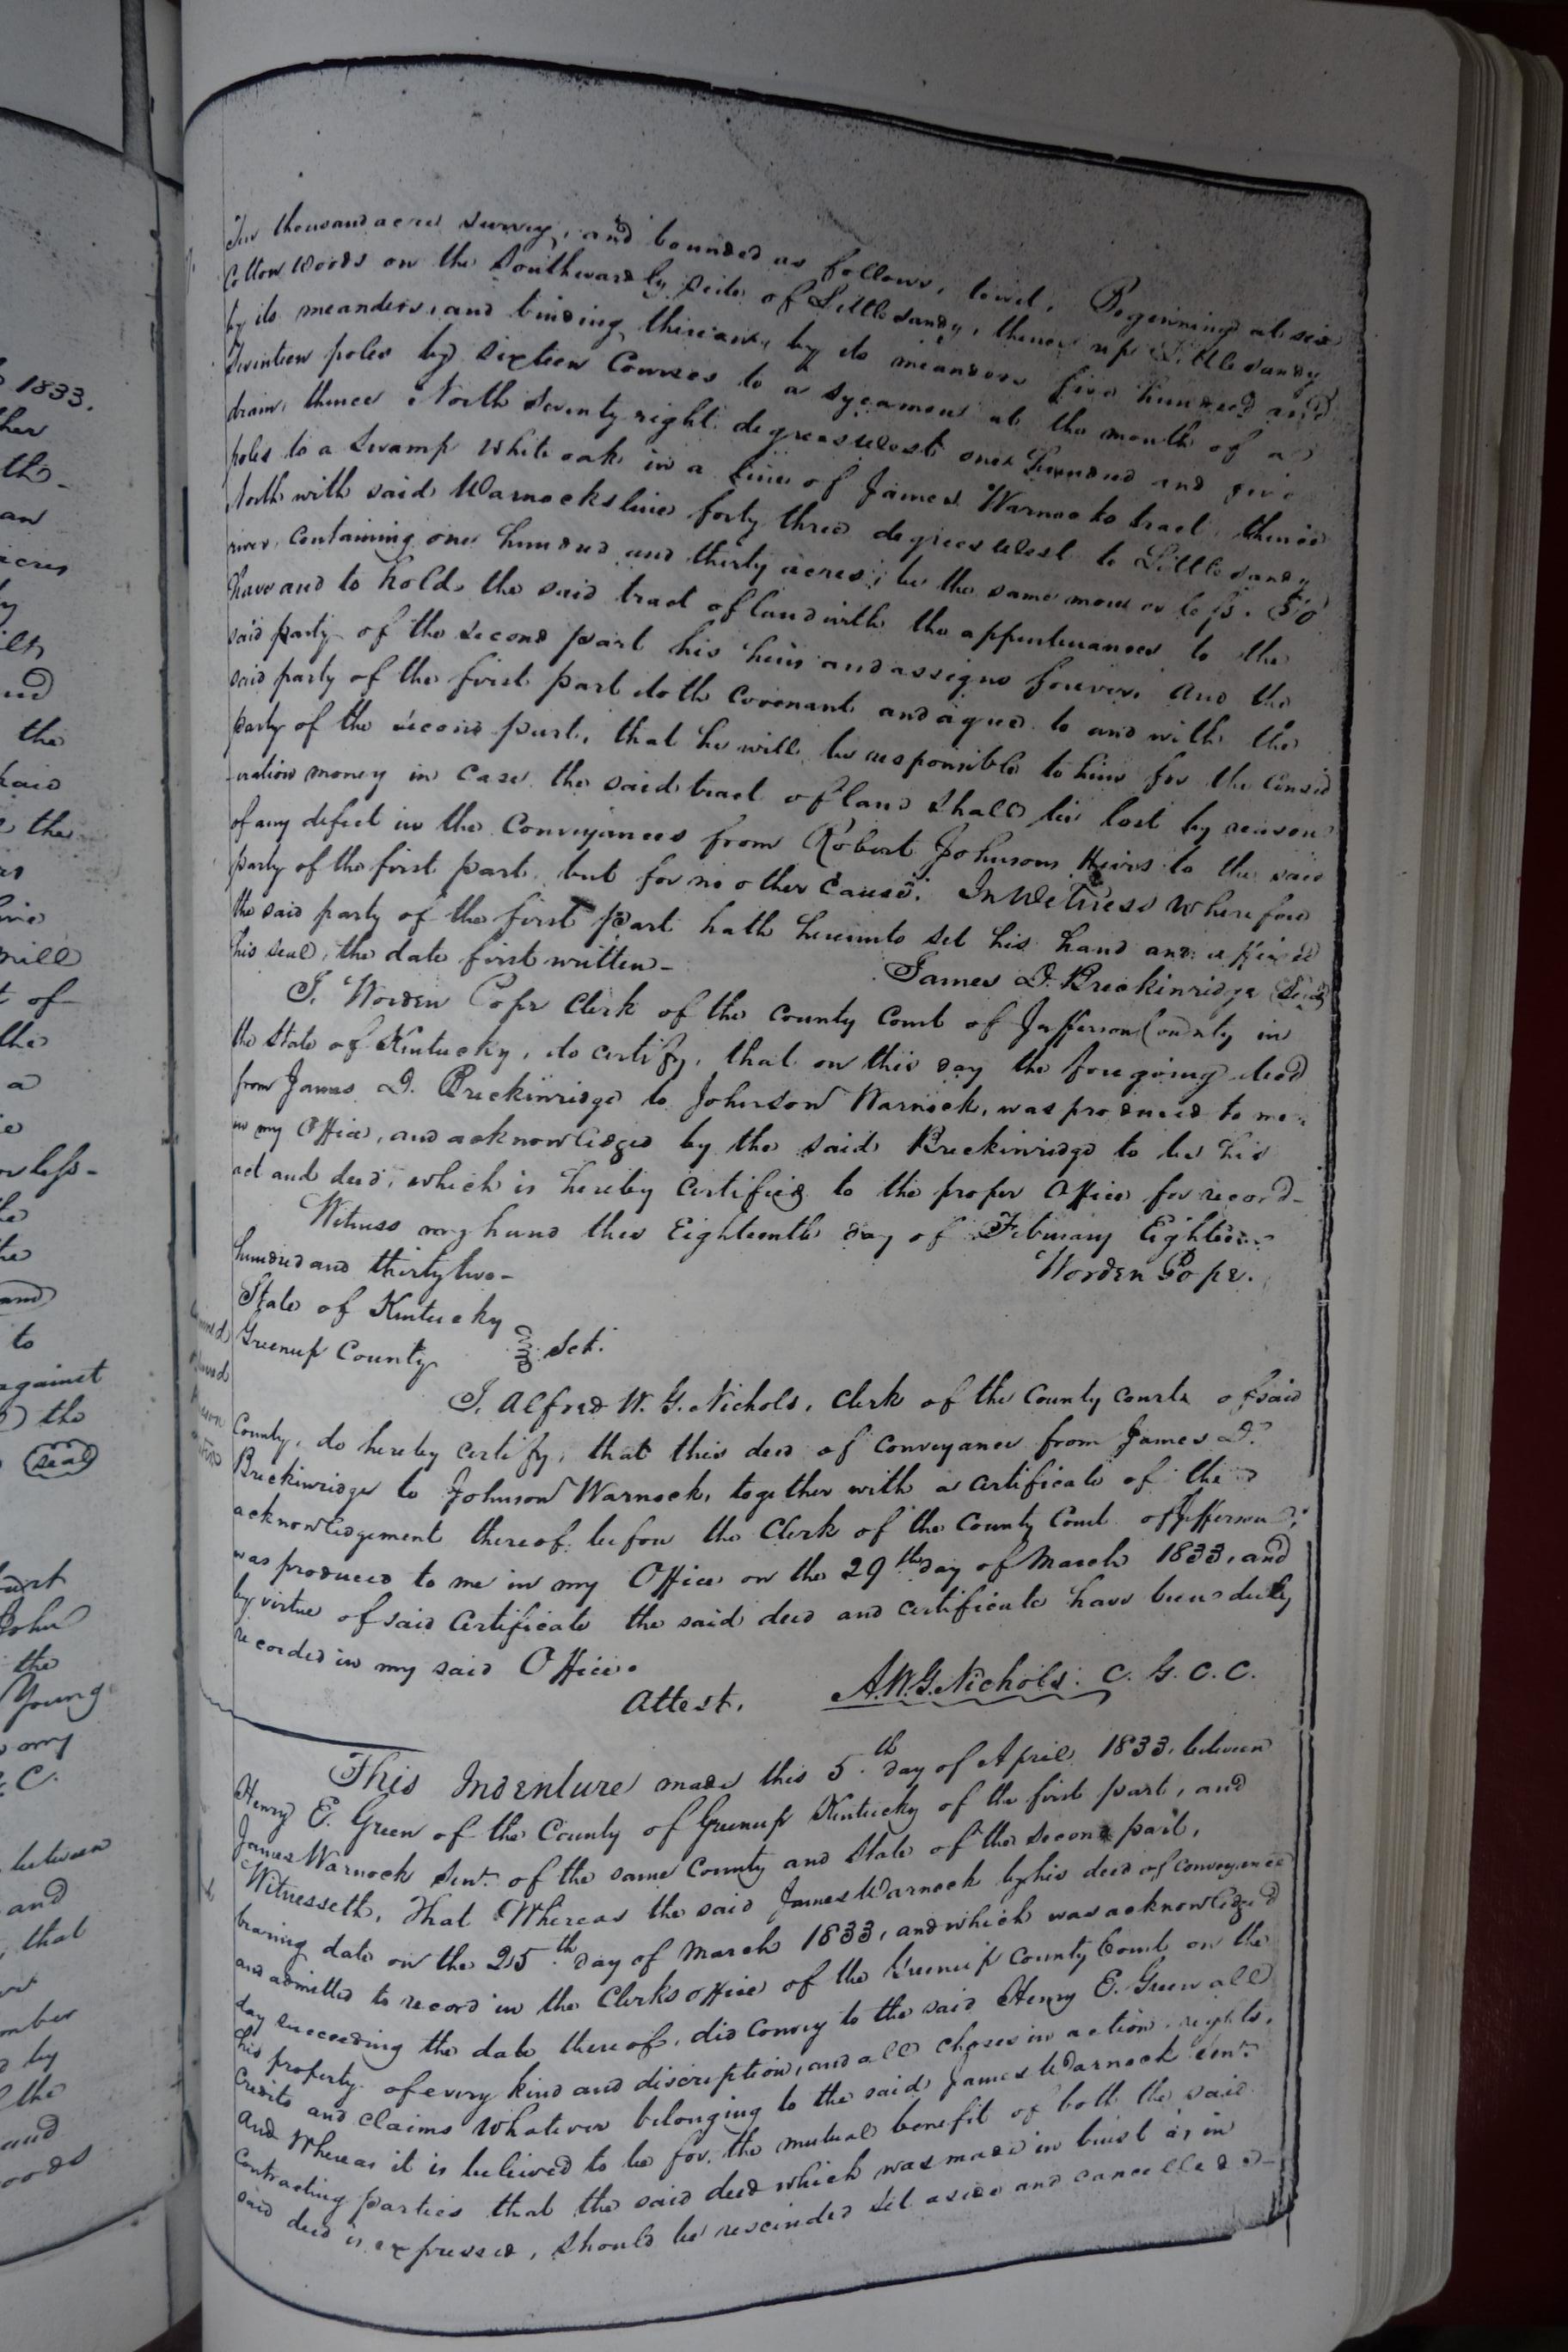 1833.
her
the
an
acres
the
said
the
mill
of
the
a
or less-
to
against
the
seal
John
the
Young
my
C.
between
and
that
by
the
and
Ten thousand acres survey, and bounded as follows, towit, Beginning at six
Cotton woods on the Southwardly side of Little sandy, thence up Little sandy
by its meanders, and binding thereon, by its meanders five hundred and
Seventeen poles by sixteen Courses to a sycamore at the mouth of a
drain, thence North Seventy eight degrees West one hundred and five
poles to a Swamp White oak in a line of James Warnocks tract, thence
North with said Warnocks line forty three degrees West to Little sandy
river, Containing one hundred and thirty acres, be the same more or less. To
have and to hold, the said tract of land with the appurtenances to the
said party of the second part his heirs and assigns forever. And the
said party of the first part doth covenant and agree to and with the
party of the second part, that he will be responsible to him for the consid
-eration money in case the said tract of land shall be lost by reason
of any defect in the Conveyances from Robert Johnsons Heirs to the said
party of the first part, but for no other cause. In Witness Wherefore
the said party of the first part hath hereunto set his hand and affixed
his seal, the date first written-
James D. Breckinridge Seal
I. Worden Pope Clerk of the County Court of Jefferson County in
the State of Kentucky, do certify, that on this day the foregoing deed
from James D. Breckinridge to Johnson Warnock, was produced to me
in my Office, and acknowledged by the said Breckinridge to be his
act and deed, which is hereby Certified to the proper Office for record-
Witness my hand this Eighteenth day of February Eighteen
hundred and thirty two-
Worden Pope.
State of Kentucky
Greenup County Sct.
I. Alfred W. G. Nichols, Clerk of the County Courts of said
County, do hereby certify, that this deed of Conveyance from James D.
Breckinridge to Johnson Warnock, together with a certificate of the
acknowledgement thereof before the Clerk of the County Court of Jefferson,
was produced to me in my Office on the 29th day of March 1833, and
by virtue of said Certificate the said deed and certificate have been duly
recorded in my said Office.
Attest. A.W.G. Nichols. C. G. C. C.
This Indenture made this 5th day of April 1833. between
Henry E. Green of the County of Greenup Kentucky of the first part, and
James Warnock Senr. of the same County and State of the second part,
Witnesseth, That Whereas the said James Warnock by his deed of conveyance
bearing date on the 25th day of March 1833, and which was acknowledged
and admitted to record in the Clerks office of the Greenup County Court on the
day succeeding the date thereof, did Convey to the said Henry E. Green all
his property of every kind and discription, and all choses in action, rights,
Credits and claims whatever belonging to the said James Warnock Senr.
And Whereas it is believed to be for the mutual benefit of both the said
Contracting parties that the said deed which was made in trust as in
said deed is expressed, should be rescinded set aside and cancelled-